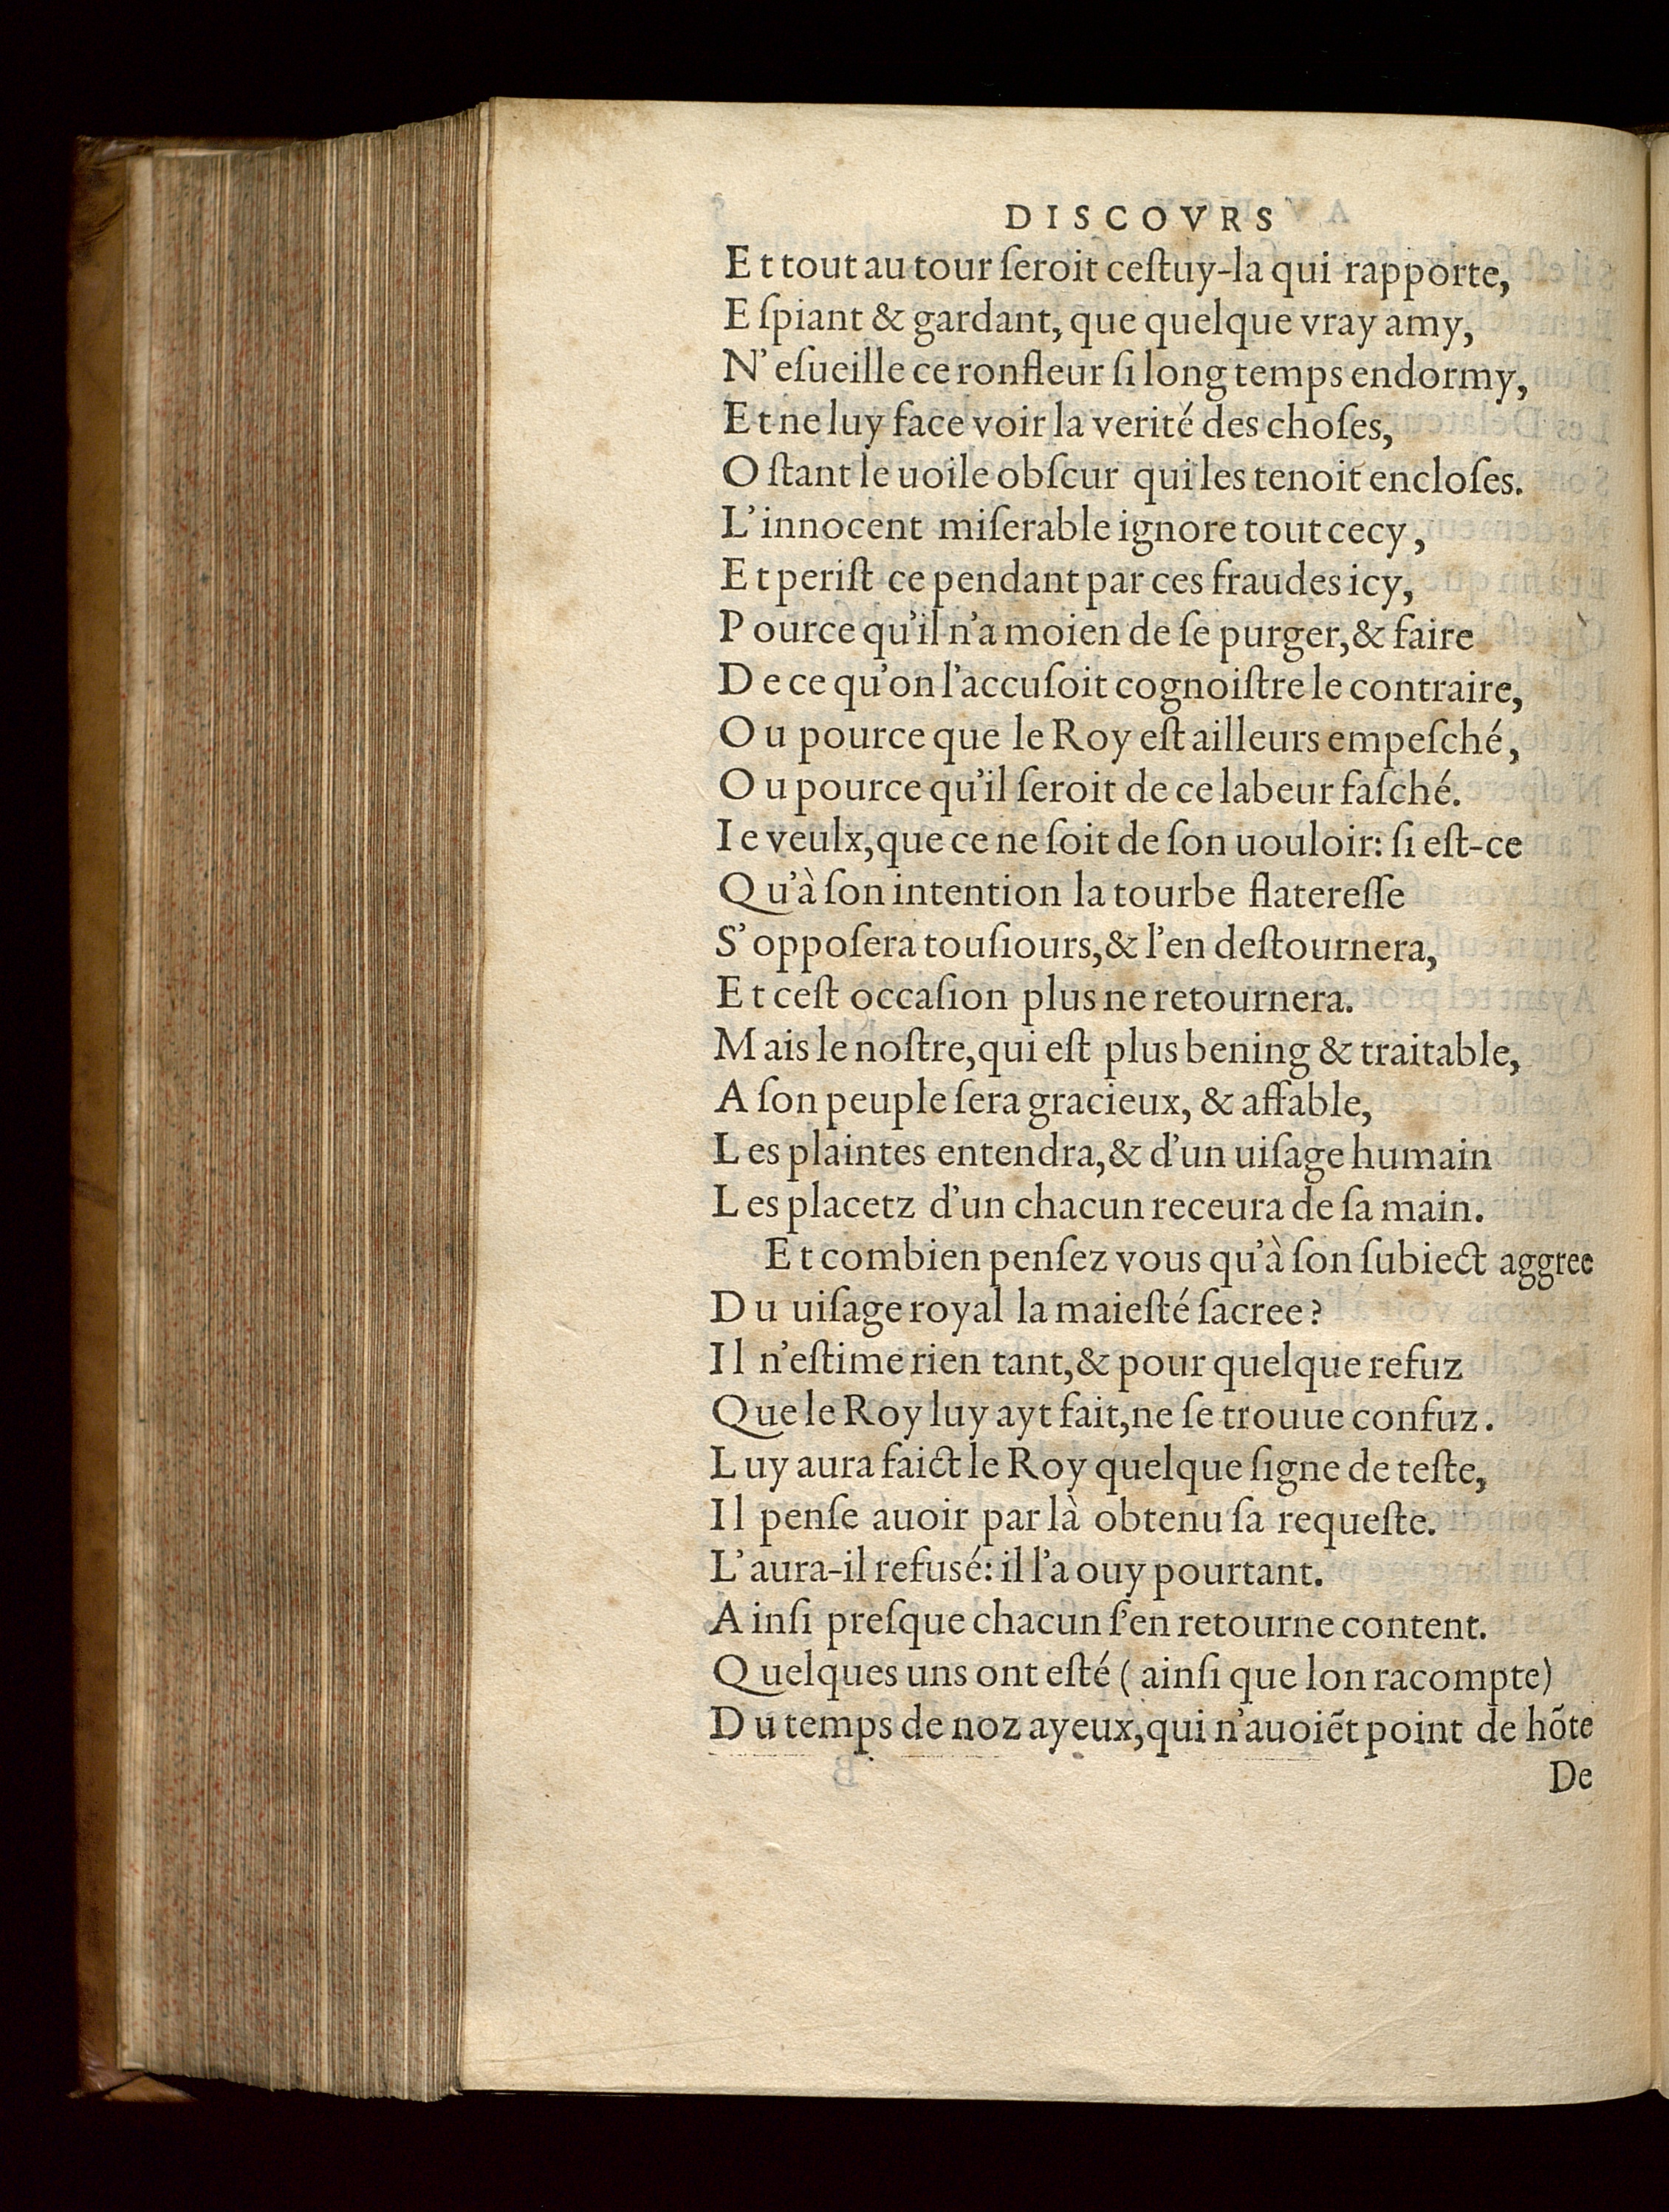 DISCOVRS
Et tout au tour ſeroit ceſtuy-la qui rapporte,
Eſpiant & gardant, que quelque vray amy,
N'eſueille ce ronfleur ſi long temps endormy,
Et ne luy face voir la verité des choſes,
Oſtant le uoile obſcur qui les tenoit encloſes.
L'innocent miſerable ignore tout cecy,
Et periſt ce pendant par ces fraudes icy,
Pource qu'il n'a moien de ſe purger,& faire
De ce qu'on l'accuſoit cognoiſtre le contraire,
Ou pource que le Roy eſt ailleurs empeſché,
Ou pource qu'il ſeroit de ce labeur faſché.
Ie veulx,que ce ne ſoit de ſon uouloir: ſi eſt-ce
Qu'à ſon intention la tourbe flatereſſe
S'oppoſera touſiours,& l'en deſtournera,
Et ceſt occaſion plus ne retournera.
Mais le noſtre,qui eſt plus bening & traitable,
A ſon peuple ſera gracieux, & affable,
Les plaintes entendra,& d'un uiſage humain
Les placetz d'un chacun receura de ſa main.
Et combien penſez vous qu'à ſon ſubiect aggree
Du uiſage royal la maieſté ſacree?
Il n'eſtime rien tant,& pour quelque refuz
Que le Roy luy ayt fait,ne ſe trouue confuz.
Luy aura faict le Roy quelque ſigne de teſte,
Il penſe auoir par là obtenu ſa requeſte.
L'aura-il refusé: il l'a ouy pourtant.
Ainſi preſque chacun ſ'en retourne content.
Quelques uns ont eſté (ainſi que lon racompte)
Du temps de noz ayeux,qui n'auoiẽt point de hõte
De